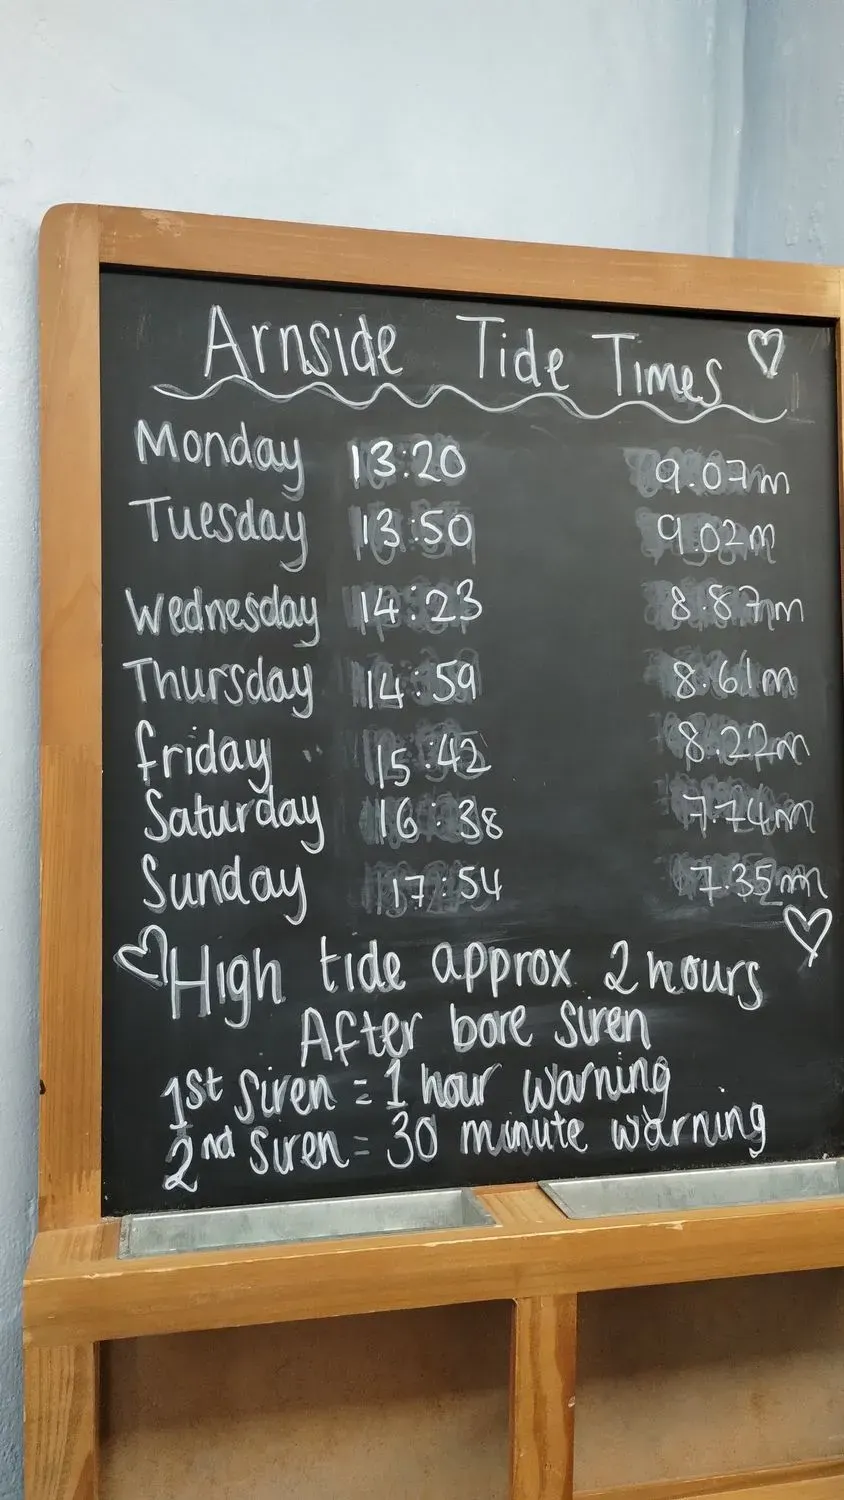 Arnside Tide Times
Monday 13:20 9.07m
Tuesday 13:50 9.02m
Wednesday 14:23 8.87m
Thursday 14:59 8.61m
Friday 15:42 8.22m
Saturday 16:38 7.74m
Sunday 17:54 7.35m
High tide approx 2 hours
After bore siren
1st Siren = 1 hour warning
2nd Siren = 30 minute warning